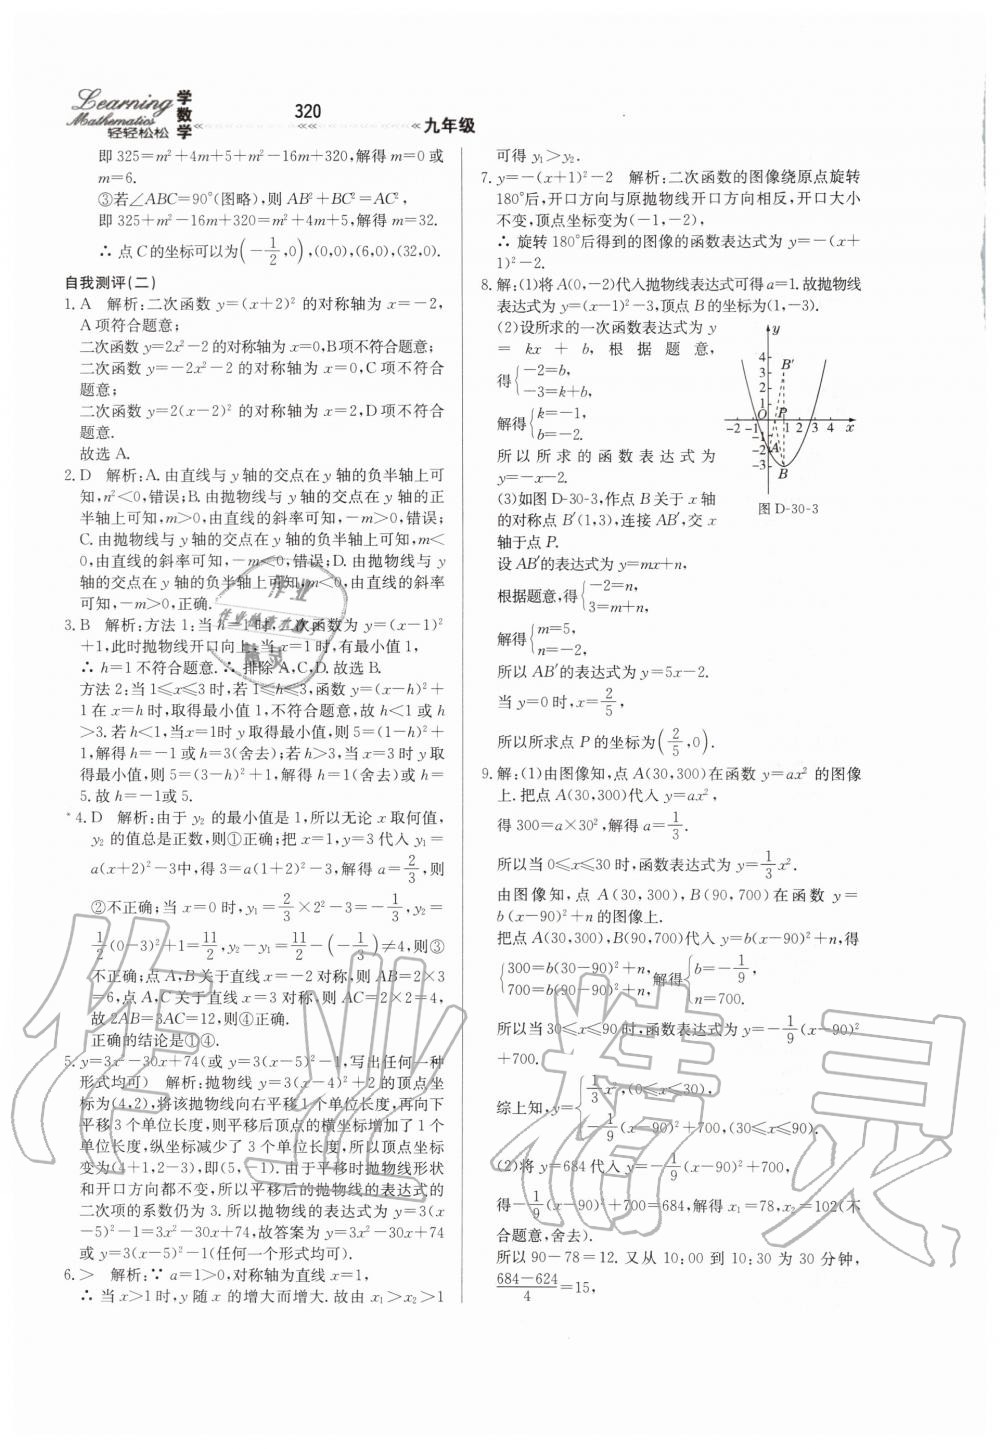 Learning
Mathematics
轻轻松松
学数学
320
九年级
即 325=m²+4m+5+m²-16m+320,解得 m=0 或
m=6.
③若∠ABC=90°(图略),则 AB²+BC²=AC²,
即 325+m²-16m+320=m²+4m+5,解得 m=32.
∴ 点 C 的坐标可以为(-1/2,0),(0,0),(6,0),(32,0).
自我测评(二)
1. A 解析:二次函数 y=(x+2)² 的对称轴为 x=-2,
A 项符合题意;
二次函数 y=2x²-2 的对称轴为 x=0,B项不符合题意;
二次函数 y=-2x²-2 的对称轴为 x=0,C 项不符合
题意;
二次函数 y=2(x-2)² 的对称轴为 x=2,D 项不符合
题意.
故选 A.
2. D 解析:A. 由直线与 y 轴的交点在 y 轴的负半轴上可
知,n²<0,错误;B. 由抛物线与 y 轴的交点在 y 轴的正
半轴上可知,m>0,由直线的斜率可知,-m>0,错误;
C. 由抛物线与 y 轴的交点在 y 轴的负半轴上可知,m<
0,由直线的斜率可知,-m<0,错误;D. 由抛物线与 y
轴的交点在 y 轴的负半轴上可知,m<0,由直线的斜率
可知,-m>0,正确.
3. B 解析:方法 1:当 h=1 时,二次函数为 y=(x-1)²
+1,此时抛物线开口向上,当 x=1 时,有最小值 1,
∴ h=1 不符合题意.∴ 排除 A,C,D. 故选 B.
方法 2:当 1≤x≤3 时,若 1≤h≤3,函数 y=(x-h)²+
1 在 x=h 时,取得最小值 1,不符合题意,故 h<1 或 h
>3. 若 h<1,当x=1时 y 取得最小值,则 5=(1-h)²+
1,解得 h=-1 或 h=3(舍去);若 h>3,当 x=3 时 y 取
得最小值,则 5=(3-h)²+1,解得 h=1(舍去)或 h=
5. 故 h=-1或 5.
*4. D 解析:由于 y₂ 的最小值是 1,所以无论 x 取何值,
y₂ 的值总是正数,则①正确;把 x=1,y=3 代入 y₁=
a(x+2)²-3中,得 3=a(1+2)²-3,解得 a=2/3,则
②不正确;当 x=0 时,y₁=2/3×2²-3=-1/3,y₂=
1/2(0-3)²+1=11/2,y₂-y₁=11/2-(-1/3)≠4,则③
不正确;点 A,B 关于直线 x=-2 对称,则 AB=2×3
=6,点 A,C 关于直线 x=3 对称,则 AC=2×2=4,
故 2AB=3AC=12,则④正确.
正确的结论是①④.
5. y=3x²-30x+74(或 y=3(x-5)²-1,写出任何一种
形式均可) 解析:抛物线 y=3(x-4)²+2 的顶点坐
标为(4,2),将该抛物线向右平移 1 个单位长度,再向下
平移 3 个单位长度,则平移后顶点的横坐标增加了 1 个
单位长度,纵坐标减少了 3 个单位长度,所以顶点坐标
变为(4+1,2-3),即(5,-1). 由于平移时抛物线形状
和开口方向都不变,所以平移后的抛物线的表达式的
二次项的系数仍为 3. 所以抛物线的表达式为 y=3(x
-5)²-1=3x²-30x+74,故答案为 y=3x²-30x+74
或 y=3(x-5)²-1(任何一个形式均可).
6. > 解析:∵ a=1>0,对称轴为直线 x=1,
∴ 当 x>1 时,y 随 x 的增大而增大. 故由 x₁>x₂>1
可得 y₁>y₂.
7. y=-(x+1)²-2 解析:二次函数的图像绕原点旋转
180°后,开口方向与原抛物线开口方向相反,开口大小
不变,顶点坐标变为(-1,-2),
∴ 旋转 180°后得到的图像的函数表达式为 y=-(x+
1)²-2.
8. 解:(1)将 A(0,-2)代入抛物线表达式可得 a=1. 故抛物线
表达式为 y=(x-1)²-3,顶点 B 的坐标为(1,-3).
(2)设所求的一次函数表达式为 y
= kx + b, 根 据 题 意,
得{-2=b,
-3=k+b,
解得{k=-1,
b=-2.
所以所求的函数表达式为
y=-x-2.
(3)如图 D-30-3,作点 B 关于 x 轴
的对称点 B′(1,3),连接 AB′,交 x
轴于点 P.
y
4
B′
3
2
1
O
P
-2 -1
1 2 3 4 x
A
-2
-3
B
图 D-30-3
设 AB′的表达式为 y=mx+n,
根据题意,得{-2=n,
3=m+n,
解得{m=5,
n=-2,
所以 AB′的表达式为 y=5x-2.
当 y=0 时,x=2/5,
所以所求点 P 的坐标为(2/5,0).
9. 解:(1)由图像知,点 A(30,300)在函数 y=ax² 的图像
上. 把点 A(30,300)代入 y=ax²,
得 300=a×30²,解得 a=1/3.
所以当 0≤x≤30 时,函数表达式为 y=1/3x².
由图像知,点 A(30,300),B(90,700)在函数 y=
b(x-90)²+n 的图像上.
把点 A(30,300),B(90,700)代入 y=b(x-90)²+n,得
{300=b(30-90)²+n,
700=b(90-90)²+n,
解得{b=-1/9,
n=700.
所以当 30≤x≤90 时,函数表达式为 y=-1/9(x-90)²
+700.
综上知,y={1/3x²,(0≤x≤30),
-1/9(x-90)²+700,(30≤x≤90).
(2)将 y=684 代入 y=-1/9(x-90)²+700,
得-1/9(x-90)²+700=684,解得 x₁=78,x₂=102(不
合题意,舍去).
所以 90-78=12. 又从 10:00 到 10:30 为 30 分钟,
(684-624)/4=15,
作业精灵